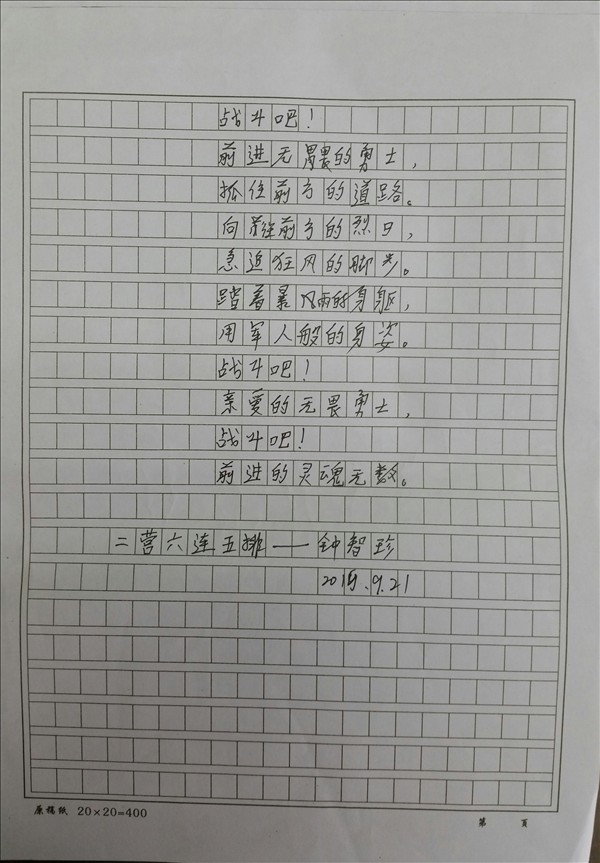 战斗吧！
前进无畏的勇士，
抓住前方的道路。
向着前方的烈日，
急迫狂风的脚步。
踏着暴风雨的身躯，
用军人般的身姿。
战斗吧！
亲爱的无畏勇士，
战斗吧！
前进的灵魂无数。
二营六连五排——钟智珍
9.21
原稿纸 20×20=400
第 页